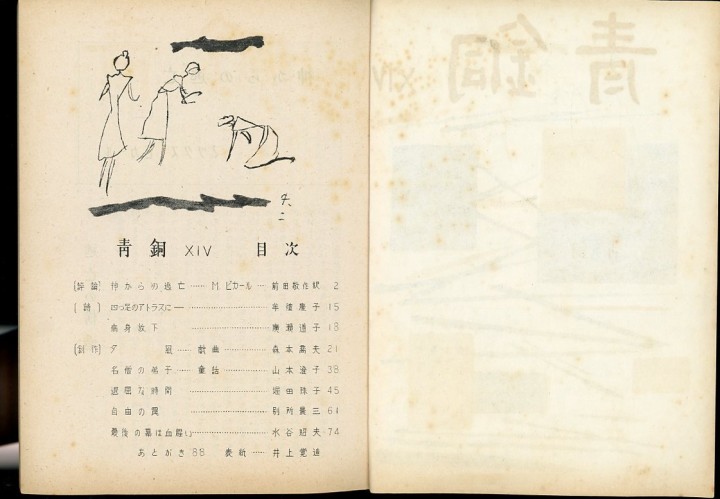 青銅 XIV 目次
〔評論〕 神からの逃亡 …… M ピカール … 前田敬作訳 2
〔詩〕 四つ足のアトラスに ……… 子 15
病身放下 ……… 廣瀬道子 18
〔創作〕 夕凪 … 戯曲 ……… 森本 夫 21
名僧の弟子 … 童話 ……… 山本澄子 38
退屈な時間 ……… 堀田珠子 45
自由の罠 ……… 別所 三 61
最後の墓は血 い ……… 水谷紹夫 74
あとがき 88 表紙 …… 井上覚造
青銅 XIV